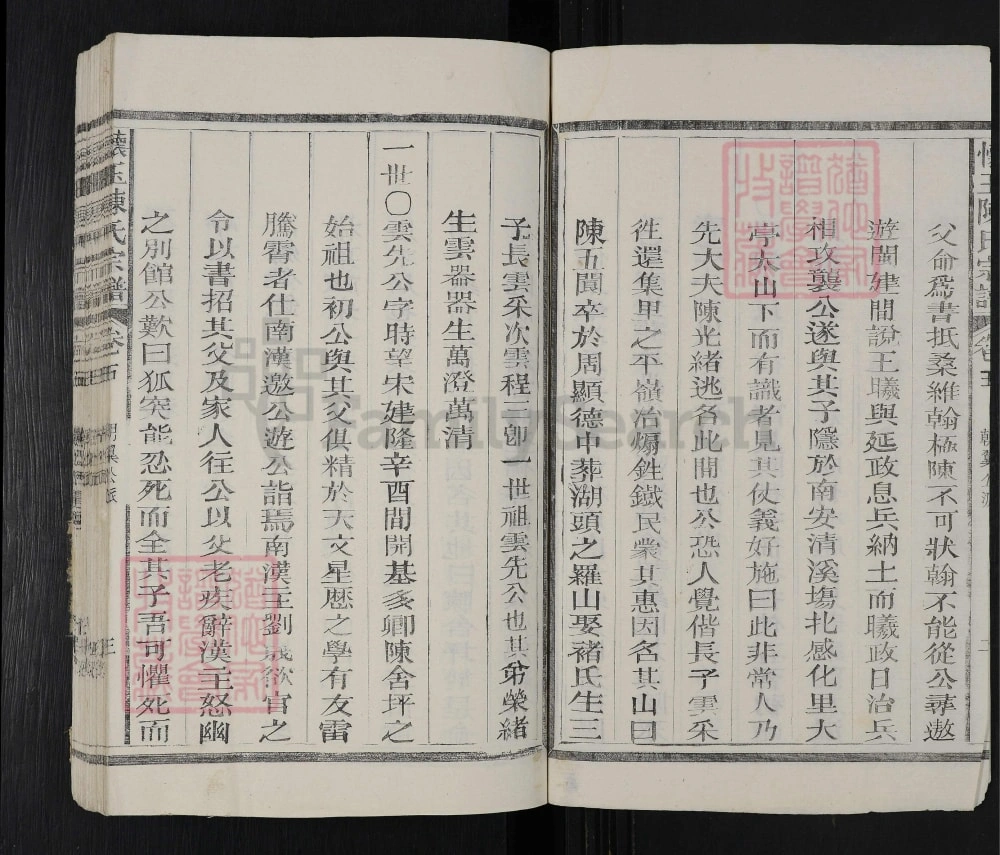 父命爲書抵桑維翰極陳不可狀翰不能從公尋遨
遊閩建間說王曦與延政息兵納土而曦政日治兵
相攻襲公遂與其子隱於南安清溪塲北感化里大
亭大山下而有識者見其仗義好施曰此非常人乃
先大夫陳光緒逃名此間也公恐人覺偕長子雲采
徃還集里之平嶺冶煽鉎鐵民蒙其惠因名其山曰
陳五閬卒於周顯德中葬湖頭之羅山娶褚氏生三
子長雲采次雲程三卽一世祖雲先公也其弟榮緒
生雲器器生萬澄萬清
一世〇雲先公字時望宋建隆辛酉間開基多卿陳舍坪之
始祖也初公與其父俱精於天文星歷之學有友雷
騰霄者仕南漢邀公遊公詣焉南漢主劉晟欲官之
令以書招其父及家人往公以父老疾辭漢主怒幽
之別館公歎曰狐突能忍死而全其子吾可懼死而
懷玉陳氏宗譜
卷之五
三
FamilySearch